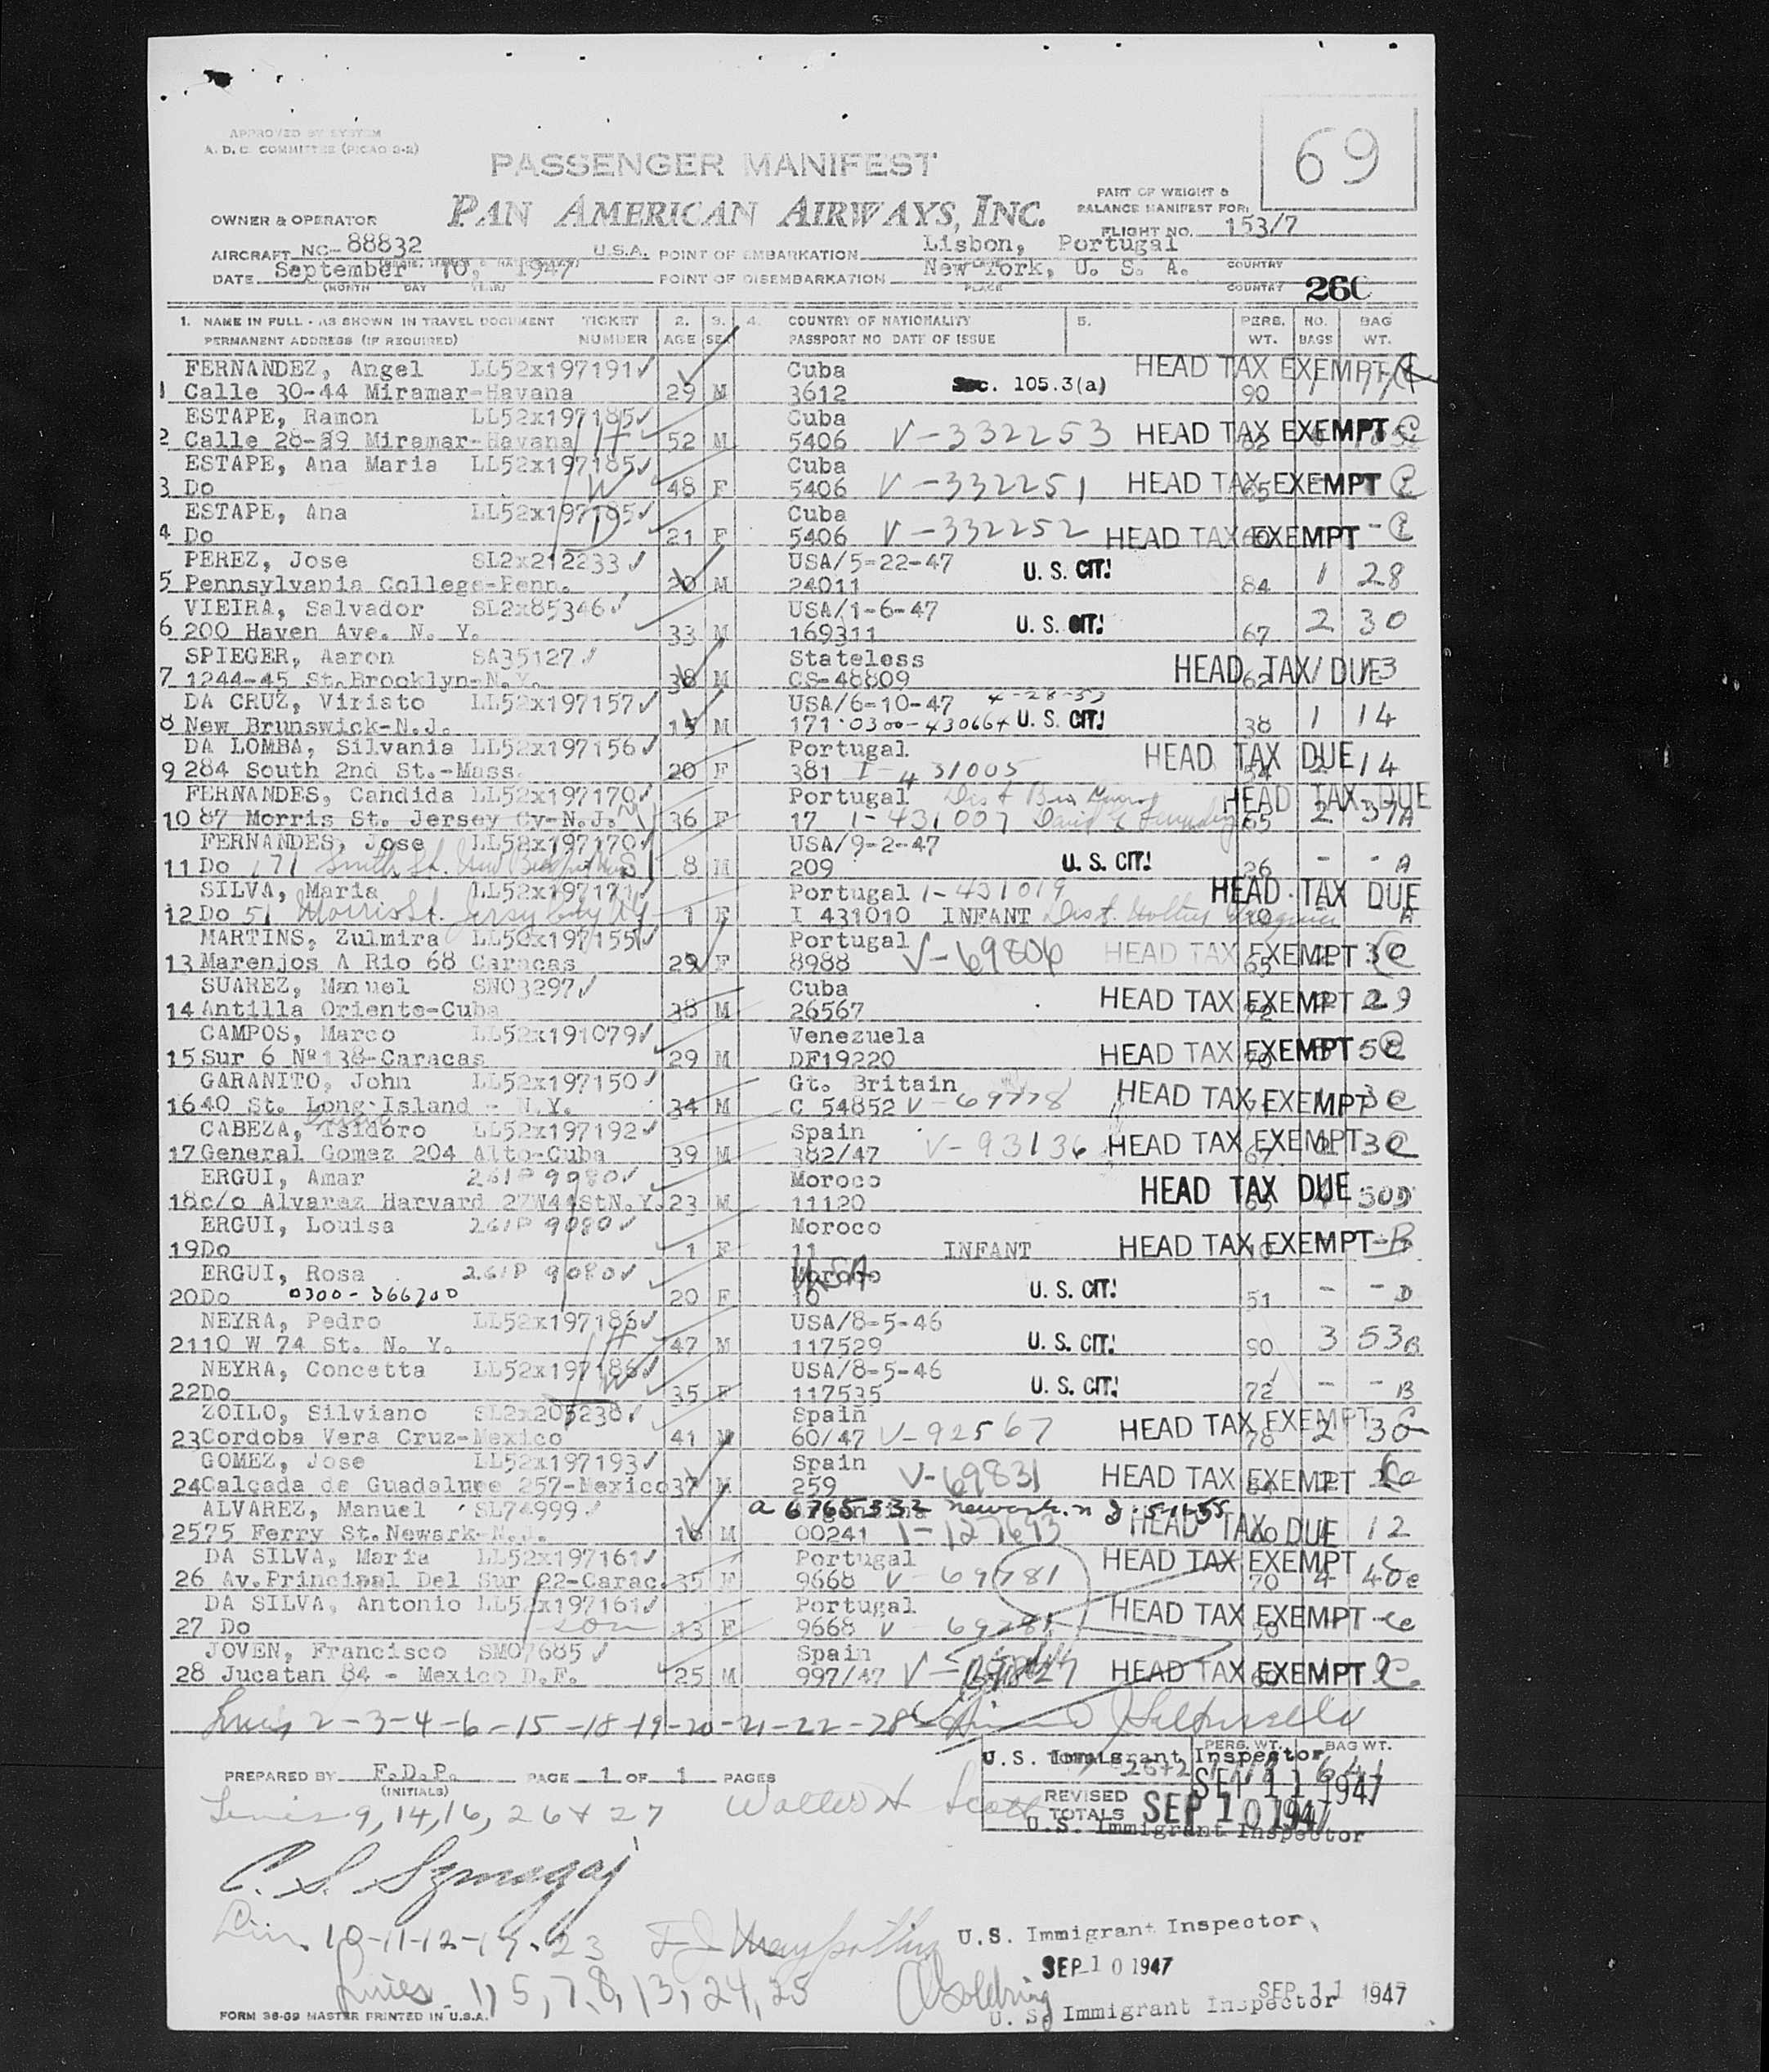 69
APPROVED BY SYSTEM
A. D. C. COMMITTEE (PICAO S-R)
PASSENGER MANIFEST
PAN AMERICAN AIRWAYS, INC.
PART OF WEIGHT &
BALANCE MANIFEST FOR:
FLIGHT NO. 153/7
OWNER & OPERATOR
AIRCRAFT NC-88832 U.S.A. POINT OF EMBARKATION Lisbon, Portugal
DATE September 10, 1947 POINT OF DISEMBARKATION New York, U. S. A.
(MONTH DAY PLACE COUNTRY
260
1. NAME IN FULL - AS SHOWN IN TRAVEL DOCUMENT TICKET 2. 3. 4. COUNTRY OF NATIONALITY 5. PERS. NO. BAG
PERMANENT ADDRESS (IF REQUIRED) NUMBER AGE SEX PASSPORT NO DATE OF ISSUE WT. BAGS WT.
FERNANDEZ, Angel LL52x197191 Cuba HEAD TAX EXEMPT
1 Calle 30-44 Miramar-Havana 29 M 3612 Sec. 105.3(a) 90
ESTAPE, Ramon LL52x197185 Cuba
2 Calle 28-39 Miramar-Havana H 52 M 5406 V-332253 HEAD TAX EXEMPT C
ESTAPE, Ana Maria LL52x197185 Cuba
3 Do W 48 F 5406 V-332251 HEAD TAX EXEMPT C
ESTAPE, Ana LL52x197185 Cuba
4 Do D 21 F 5406 V-332252 HEAD TAX EXEMPT - C
PEREZ, Jose SL2x212233 USA/5-22-47
5 Pennsylvania College-Penn. 20 M 24011 U. S. CIT! 84 1 28
VIEIRA, Salvador SL2x85346 USA/1-6-47
6 200 Haven Ave. N. Y. 33 M 169311 U. S. CIT! 67 2 30
SPIEGER, Aaron SA35127 Stateless
7 1244-45 St. Brocklyn-N.Y. 38 M CS-48809 HEAD TAX DUE 62
DA CRUZ, Viristo LL52x197157 USA/6-10-47 4-28-53
8 New Brunswick-N.J. 15 M 171 0300-430664 U. S. CIT! 38 1 14
DA LOMBA, Silvania LL52x197156 Portugal
9 284 South 2nd St.-Mass. 20 F 381 I-431005 HEAD TAX DUE 14
FERNANDES, Candida LL52x197170 Portugal
10 87 Morris St. Jersey Cy-N.J. M 36 F 17 1-431007 HEAD TAX DUE 65 2 37A
FERNANDES, Jose LL52x197170 USA/9-2-47
11 Do 171 Smith St. S 8 M 209 U. S. CIT! 26 - - A
SILVA, Maria LL52x197171 Portugal 1-431019 HEAD TAX DUE
12 Do 51 Morris St. Jersey City NJ 1 F I 431010 INFANT 10 A
MARTINS, Zulmira LL50x197155 Portugal
13 Marenjos A Rio 68 Caracas 29 F 8988 V-69806 HEAD TAX EXEMPT 65
SUAREZ, Manuel SNO3297 Cuba
14 Antilla Oriente-Cuba 38 M 26567 HEAD TAX EXEMPT 29
CAMPOS, Marco LL52x191079 Venezuela
15 Sur 6 Nº138-Caracas 29 M DF19220 HEAD TAX EXEMPT
GARANITO, John LL52x197150 Gt. Britain
16 40 St. Long Island - N.Y. 34 M C 54852 V-69778 HEAD TAX EXEMPT
CABEZA, Isidoro LL52x197192 Spain
17 General Gomez 204 Alto-Cuba 39 M 382/47 V-93136 HEAD TAX EXEMPT 67
ERGUI, Amar 261P 9080 Moroco
18 c/o Alvarez Harvard 27W44StN.Y. 23 M 11120 HEAD TAX DUE 65
ERGUI, Louisa 261P 9080 Moroco
19 Do 1 F 11 INFANT HEAD TAX EXEMPT 10
ERGUI, Rosa 261P 9080 Moroco USA
20 Do 0300-366700 20 F 10 U. S. CIT! 51 - - D
NEYRA, Pedro LL52x197186 USA/8-5-46
21 10 W 74 St. N. Y. H 47 M 117529 U. S. CIT! 90 3 53B
NEYRA, Concetta LL52x197186 USA/8-5-46
22 Do W 35 F 117535 U. S. CIT! 72 - - B
ZOILO, Silviano SL2x205238 Spain
23 Cordoba Vera Cruz-Mexico 41 M 60/47 V-92567 HEAD TAX EXEMPT 78 2
GOMEZ, Jose LL52x197193 Spain
24 Calçada de Guadalupe 257-Mexico 37 M 259 V-69831 HEAD TAX EXEMPT
ALVAREZ, Manuel SL74999 a 6765332 Newark. n J. 5-16-55
25 75 Ferry St.Newark-N.J. 16 M 00241 1-127693 HEAD TAX DUE 12
DA SILVA, Maria LL52x197161 Portugal
26 Av.Principal Del Sur 22-Carac. 35 F 9668 V-69781 HEAD TAX EXEMPT 70 4
DA SILVA, Antonio LL52x197161 Portugal
27 Do son 13 F 9668 V 69781 HEAD TAX EXEMPT 50
JOVEN, Francisco SMO7685 Spain
28 Jucatan 84 - Mexico D.F. 25 M 997/47 V- HEAD TAX EXEMPT
Lines 2-3-4-6-15-18-19-20-21-22-28
PREPARED BY F.D.P. PAGE 1 OF 1 PAGES
(INITIALS)
U.S. Immigrant Inspector
TOTALS PERS. WT. BAG WT.
26+2 641
SEP 11 1947
REVISED
TOTALS SEP 10 1947
U.S. Immigrant Inspector
Lines 9, 14, 16, 26 & 27 Walter H Scott
C. S. Szmagaj
Lin. 10-11-12-17-23
U.S. Immigrant Inspector
SEP 10 1947
Lines 1, 5, 7, 8, 13, 24, 25
SEP 11 1947
U. S. Immigrant Inspector
FORM 36-09 MASTER PRINTED IN U.S.A.